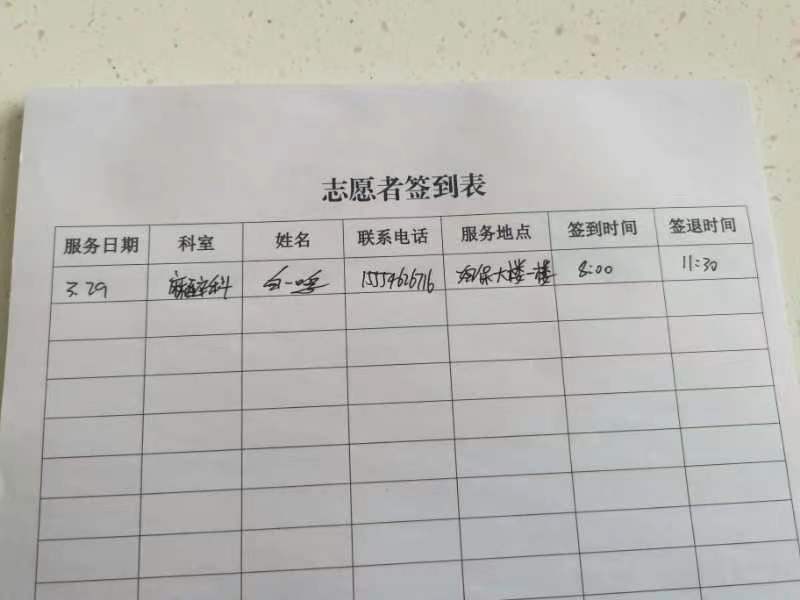 志愿者签到表
服务日期 科室 姓名 联系电话 服务地点 签到时间 签退时间
3.29 麻醉科 大楼一楼 8:00 11:30